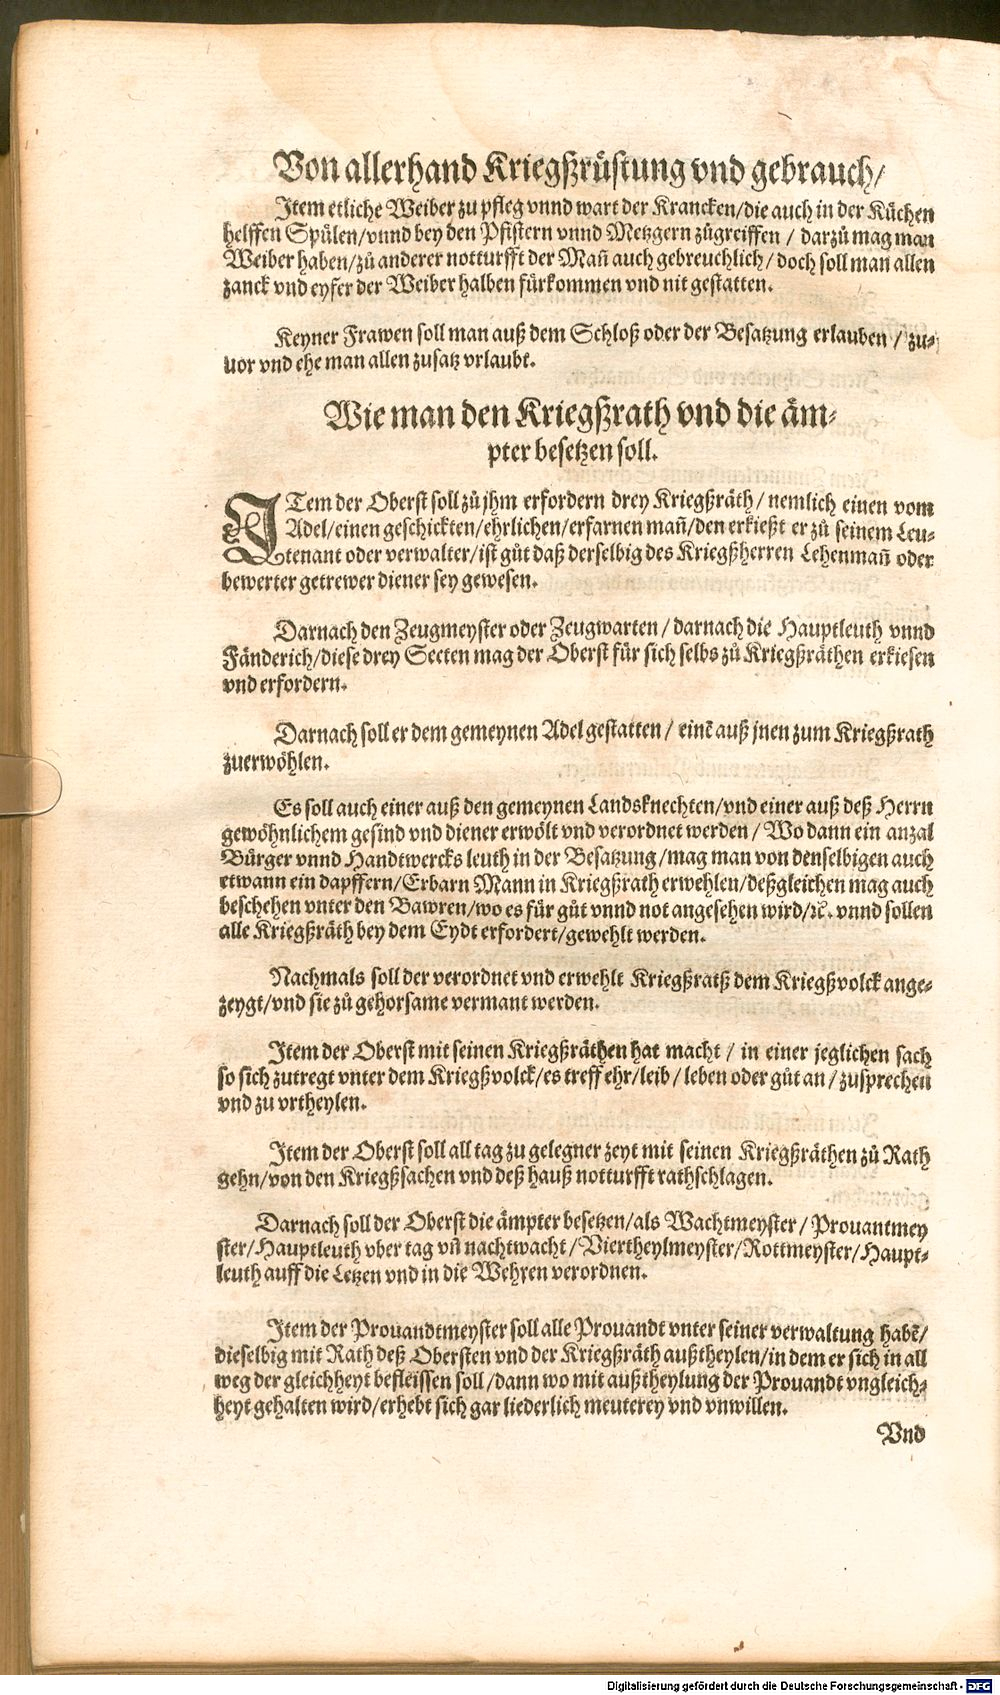 Von allerhand Kriegßrüstung vnd gebrauch/
Item etliche Weiber zu pfleg vnnd wart der Krancken/die auch in der Küchen
helffen Spülen/vnnd bey den Pfistern vnnd Metzgern zůgreiffen / darzů mag man
Weiber haben/zů anderer notturfft der Mañ auch gebreuchlich/doch soll man allen
zanck vnd eyfer der Weiber halben fürkommen vnd nit gestatten.
Keyner Frawen soll man auß dem Schloß oder der Besatzung erlauben / zu-
uor vnd ehe man allen zusatz vrlaubt.
Wie man den Kriegßrath vnd die äm-
pter besetzen soll.
ITem der Oberst soll zů jhm erfordern drey Kriegßräth/ nemlich einen vom
Adel/einen geschickten/ehrlichen/erfarnen mañ/den erkießt er zů seinem Leu-
tenant oder verwalter/ist gůt daß derselbig des Kriegßherren Lehenmañ oder
bewerter getrewer diener sey gewesen.
Darnach den Zeugmeyster oder Zeugwarten/ darnach die Hauptleuth vnnd
Fänderich/diese drey Secten mag der Oberst für sich selbs zů Kriegßräthen erkiesen
vnd erfordern.
Darnach soll er dem gemeynen Adel gestatten / einẽ auß jnen zum Kriegßrath
zuerwöhlen.
Es soll auch einer auß den gemeynen Landsknechten/vnd einer auß deß Herrn
gewöhnlichem gesind vnd diener erwölt vnd verordnet werden / Wo dann ein anzal
Bürger vnnd Handtwercks leuth in der Besatzung/mag man von denselbigen auch
etwann ein dapffern/Erbarn Mann in Kriegßrath erwehlen/deßgleichen mag auch
beschehen vnter den Bawren/wo es für gůt vnnd not angesehen wird/ꝛc. vnnd sollen
alle Kriegßräth bey dem Eydt erfordert/gewehlt werden.
Nachmals soll der verordnet vnd erwehlt Kriegßratß dem Kriegßvolck ange-
zeygt/vnd sie zů gehorsame vermant werden.
Item der Oberst mit seinen Kriegßräthen hat macht / in einer jeglichen sach
so sich zutregt vnter dem Kriegßvolck/es treff ehr/leib / leben oder gůt an / zusprechen
vnd zu vrtheylen.
Item der Oberst soll all tag zu gelegner zeyt mit seinen Kriegßräthen zů Rath
gehn/von den Kriegßsachen vnd deß hauß notturfft rathschlagen.
Darnach soll der Oberst die ämpter besetzen/als Wachtmeyster/ Prouantmey
ster/Hauptleuth vber tag vñ nachtwacht/Viertheylmeyster/Rottmeyster/Haupt-
leuth auff die Letzen vnd in die Wehren verordnen.
Item der Prouandtmeyster soll alle Prouandt vnter seiner verwaltung habẽ/
dieselbig mit Rath deß Obersten vnd der Kriegßräth außtheylen/in dem er sich in all
weg der gleichheyt befleissen soll/dann wo mit außtheylung der Prouandt vngleich-
heyt gehalten wird/erhebt sich gar liederlich meuterey vnd vnwillen.
Vnd
Digitalisierung gefördert durch die Deutsche Forschungsgemeinschaft - DFG